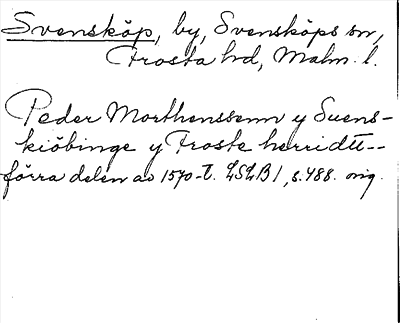 Svensköp, by, Svensköps sn,
Frosta hd, Malm. l.
Peder Morthenssenn y Suens-
kiöbinge y Froste herridtt--
förra delen av 1570-t. LSLB 1, s. 488. orig.